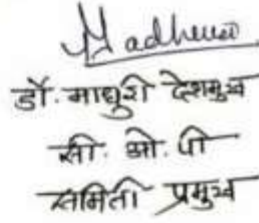 Madhuri
डॉ. माधुरी देशमुख
सी. ओ. पी
समिती प्रमुख